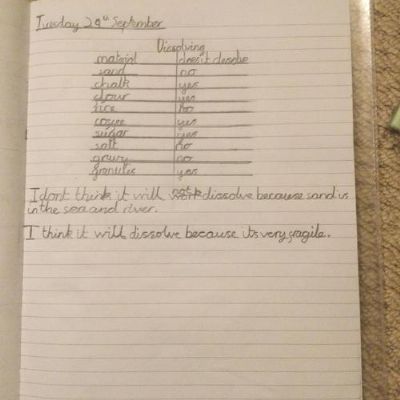 Tuesday 29th September
Dissolving
material does it disolve
sand no
chalk yes
flour yes
rice no
coffee yes
sugar yes
salt no
gravy no
granules yes
I dont think it will dissolve because sand is
in the sea and river.
I think it will dissolve because its very fragile.